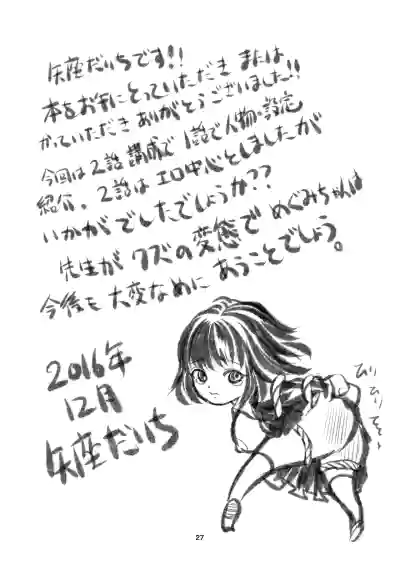 矢座だいちです!!
本をお手にとっていただき または
かっていただき ありがとうございました!!
今回は2話構成で1話で人物・設定
紹介。2話はエロ中心としましたが
いかがでしたでしょうか??
先生がクズの変態で めぐみちゃんは
今後も 大変なめに あうことでしょう。
2016年
12月
矢座だいち
27